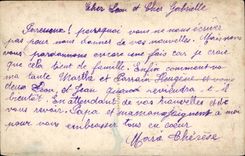 Cher Léon et Cher Gabrielle
Paresseux! pourquoi vous ne nous écrivez
pas pour nous donner de vos nouvelles. Mais nous
vous pardonnons encore une fois car je crois
que cela tient de famille. Enfin comment va
ma tante Martha et Parrain Eugène et vous
deux Léon, et Jean quand reviendra-t-il
bientôt. En attendant de vos nouvelles et de
vous revoir. Papa et maman se joignent à moi
pour vous embrasser tous en cœur
Marie Thérèse